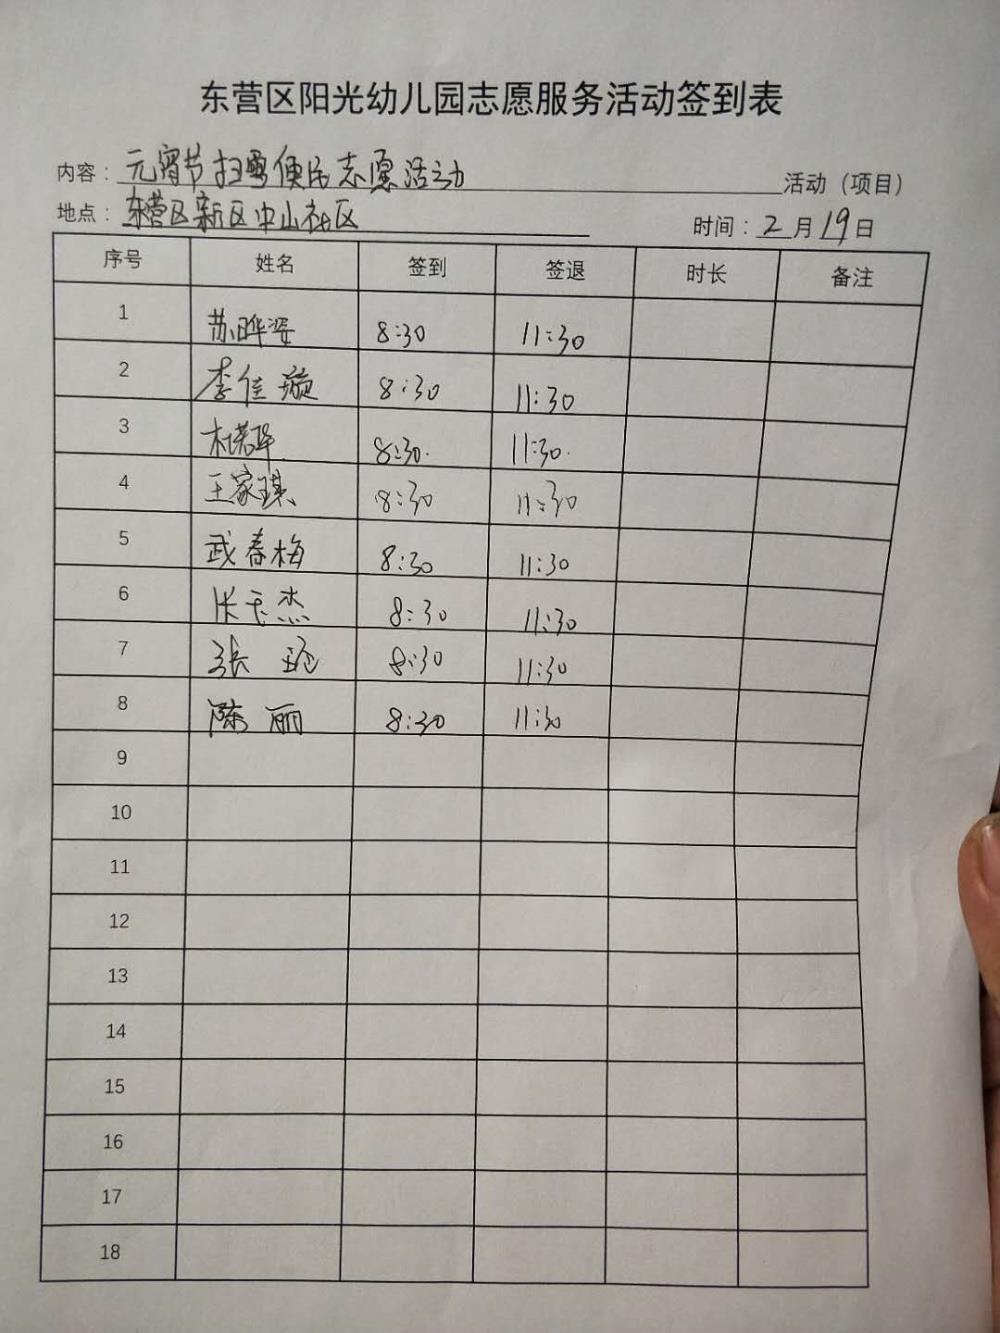 东营区阳光幼儿园志愿服务活动签到表
内容：元宵节扫雪便民志愿活动 活动（项目）
地点：东营区新区中山社区 时间：2月19日
序号 姓名 签到 签退 时长 备注
1 苏晔姿 8:30 11:30
2 李佳璇 8:30 11:30
3 8:30. 11:30.
4 王家琪 8:30 11:30
5 武春梅 8:30 11:30
6 张玉杰 8:30 11:30
7 张 8:30 11:30
8 陈丽 8:30 11:30
9
10
11
12
13
14
15
16
17
18